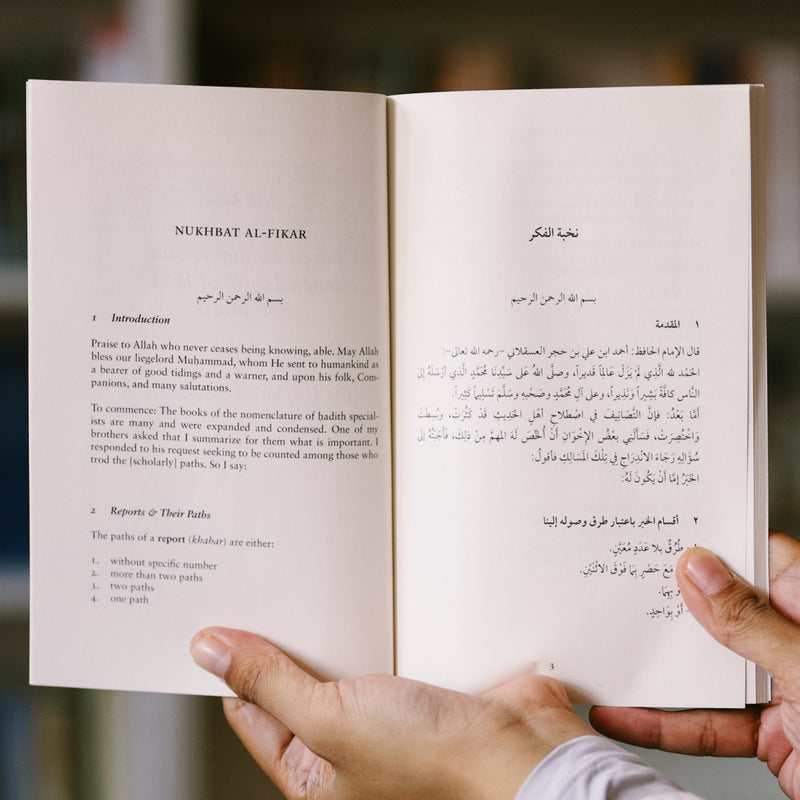 NUKHBAT AL-FIKAR
بسم الله الرحمن الرحيم
1 Introduction
Praise to Allah who never ceases being knowing, able. May Allah
bless our liegelord Muhammad, whom He sent to humankind as
a bearer of good tidings and a warner, and upon his folk, Com-
panions, and many salutations.
To commence: The books of the nomenclature of ḥadith special-
ists are many and were expanded and condensed. One of my
brothers asked that I summarize for them what is important. I
responded to his request seeking to be counted among those who
trod the [scholarly] paths. So I say:
2 Reports & Their Paths
The paths of a report (khabar) are either:
1. without specific number
2. more than two paths
3. two paths
4. one path
نخبة الفكر
بسم الله الرحمن الرحيم
١ المقدمة
قال الإمام الحافظ: أحمد ابن علي بن حجر العسقلاني -رحمه الله تعالى-:
الحَمْد لله الَّذِي لَمْ يَزَلْ عَالِماً قَديراً، وصلَّى اللهُ عَلى سَيِّدِنَا مُحَمَّدٍ الَّذِي أَرْسَلَهُ إِلى
النَّاس كافَّةً بَشِيراً وَنَذِيراً، وعلى آلِ مُحَمَّدٍ وصَحْبِهِ وسَلَّمَ تَسْلِيمَاً كَثِيرَاً.
أَمَّا بَعْدُ: فإنَّ التَّصَانِيفَ في اصْطِلاحِ أَهْلِ الحَدِيثِ قَدْ كَثُرَتْ، وبُسِطَتْ
وَاخْتُصِرَتْ، فَسَأَلَنِي بَعْضُ الإِخْوَانِ أَنْ أُلَخِّصَ لَهُ المهمَّ مِنْ ذلِكَ، فَأَجَبْتُهُ إِلَى
سُؤَالِهِ رَجَاءَ الانْدِرَاجِ فِي تِلْكَ المَسَالِكِ فأقولُ:
الخَبَرُ إمَّا أَنْ يَكُونَ لَهُ:
٢ أقسام الخبر باعتبار طرق وصوله إلينا
طُرُقٌ بلا عَدَدٍ مُعَيَّنٍ.
مَعَ حَصْرٍ بِمَا فَوْقَ الاثْنَيْنِ.
بِهِمَا.
أَوْ بِوَاحِدٍ.
3